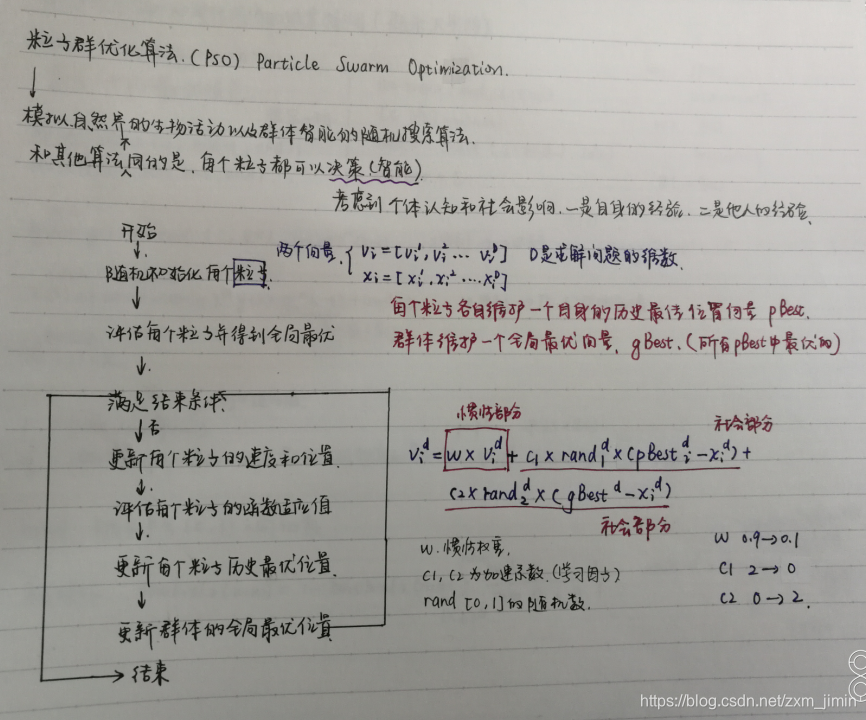 粒子群优化算法.(PSO) Particle Swarm Optimization.
模拟自然界的生物活动以及群体智能的随机搜索算法.
和其他算法不同的是,每个粒子都可以决策(智能)
考虑到个体认知和社会影响.一是自身的经验.二是他人的经验.
开始
两个向量. { Vi = [vi¹, vi² ... vi^D] D是求解问题的维数.
xi = [xi¹, xi² ... xi^D]
随机初始化每个粒子.
每个粒子各自维护一个自身的历史最佳位置向量 pBest.
评估每个粒子并得到全局最优
群体维护一个全局最优向量. gBest. (所有pBest中最优的)
满足结束条件
否
惯性部分
社会部分
更新每个粒子的速度和位置.
Vi^d = w × Vi^d + C1 × rand1^d × (pBesti^d - xi^d) +
C2 × rand2^d × (gBest^d - xi^d)
社会部分
评估每个粒子的函数适应值
更新每个粒子历史最优位置.
更新群体的全局最优位置
结束
w. 惯性权重.
C1, C2 为加速系数.(学习因子)
rand [0,1]的随机数.
w 0.9→0.1
C1 2→0
C2 0→2.
https://blog.csdn.net/zxm_jimin